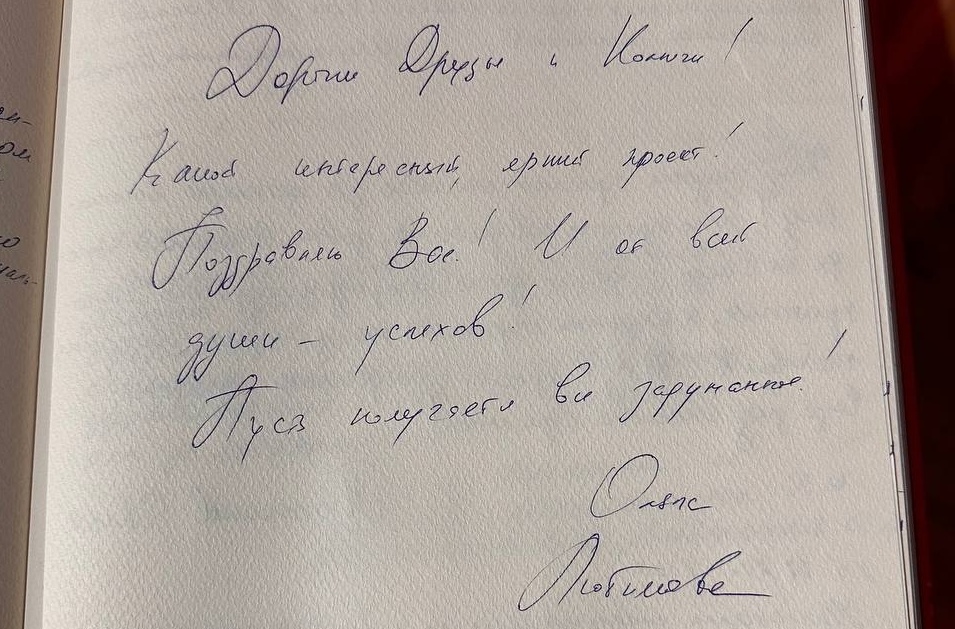 Дорогие Друзья и Коллеги!
Какой интересный, яркий проект!
Поздравляю Вас! И от всей
души – успехов!
Пусть получается все задуманное!
Ольга
Любимова